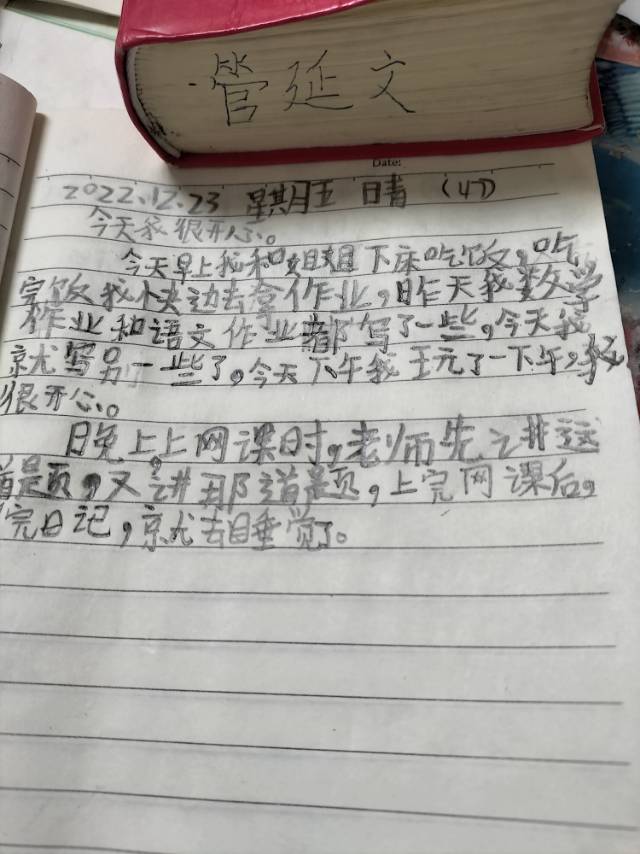 管延文
Date:
2022.12.23 星期五 晴 (47)
今天我很开心。
今天早上我和姐姐下床吃饭,吃
完饭我快边去拿作业,昨天我数学
作业和语文作业都写了一些,今天我
就写另一些了,今天下午我玩了一下午,我
很开心。
晚上上网课时,老师先讲这
道题,又讲那道题,上完网课后,
完日记,就去睡觉了。